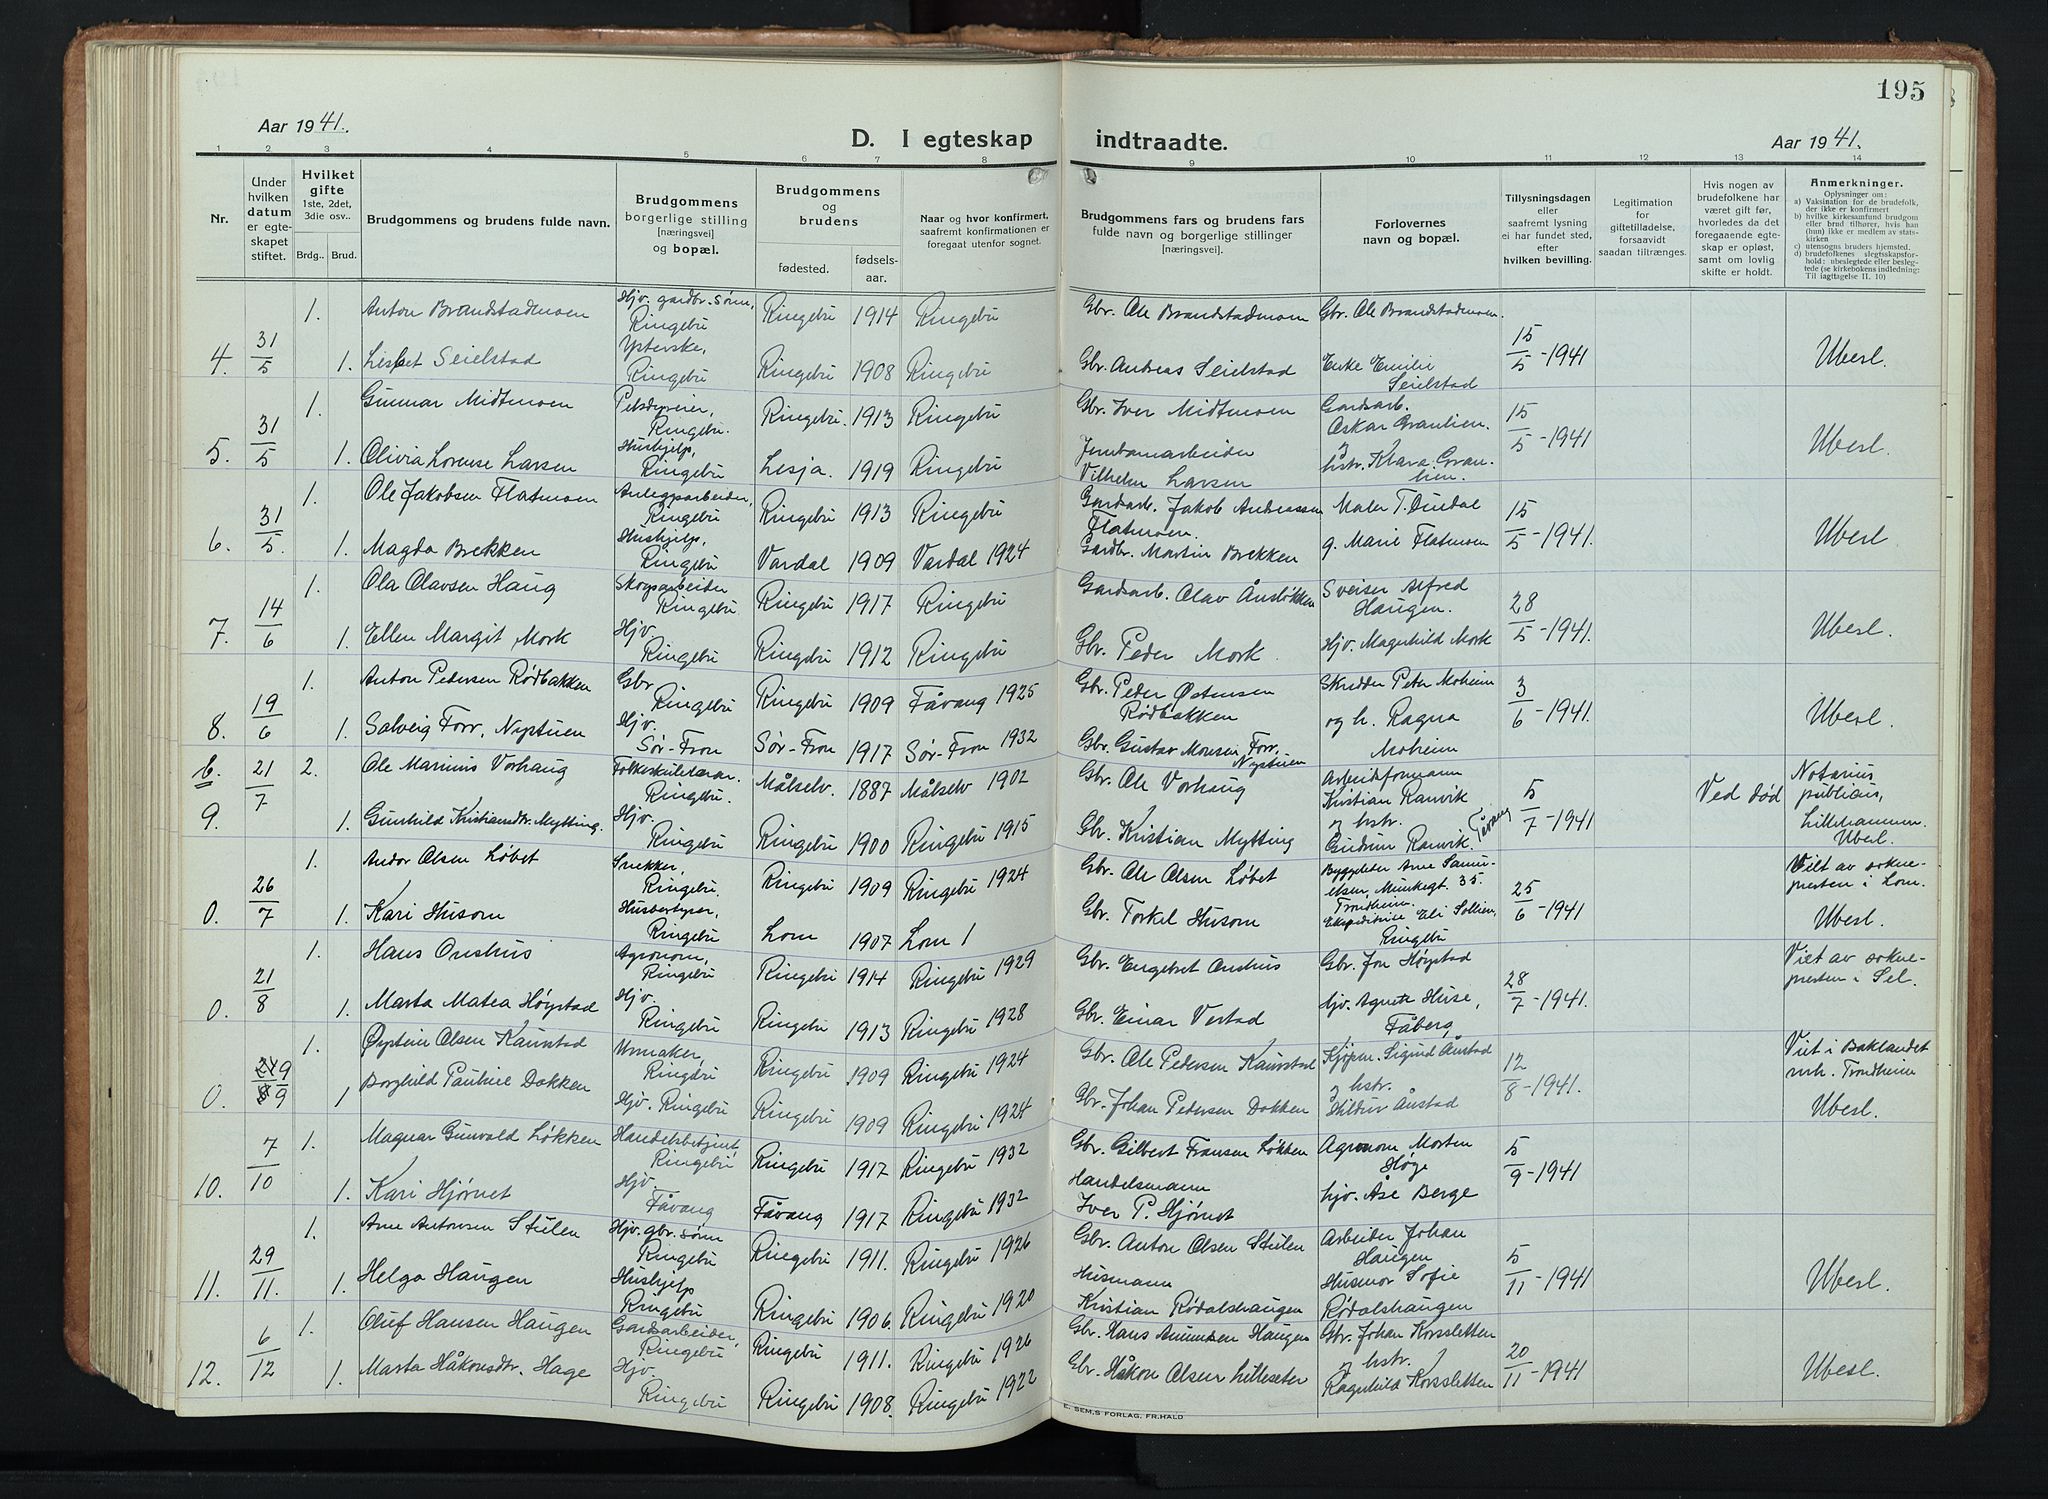 195
Aar 1941.
D. I egteskap
indtraadte.
Aar 1941.
1 2 3 4 5 6 7 8 9 10 11 12 13 14
Nr.
Under hvilken datum er egteskapet stiftet.
Hvilket gifte
1ste, 2det, 3die osv..
Brdg.. Brud.
Brudgommens og brudens fulde navn.
Brudgommens borgerlige stilling [næringsvei] og bopæl.
Brudgommens og brudens
fødested.
fødselsaar.
Naar og hvor konfirmert, saafremt konfirmationen er foregaat utenfor sognet.
Brudgommens fars og brudens fars fulde navn og borgerlige stillinger [næringsvei].
Forlovernes navn og bopæl.
Tillysningsdagen eller saafremt lysning ei har fundet sted, efter hvilken bevilling.
Legitimation for giftetilladelse, forsaavidt saadan tiltrænges.
Hvis nogen av brudefolkene har været gift før, hvorledes da det foregaaende egteskap er opløst, samt om lovlig skifte er holdt.
Anmerkninger.
Oplysninger om:
a) Vaksination for de brudefolk, der ikke er konfirmert
b) hvilke kirkesamfund brudgom eller brud tilhører, hvis han (hun) ikke er medlem av statskirken
c) utensogns bruders hjemsted.
d) brudefolkenes slegtsskapsforhold: ubeslegtede eller beslegtede (se kirkebokens indledning: Til iagttagelse II. 10)
1. Anton Brandstadmoen Hjv. gardbr. sønn, Ringebu Ringebu 1914 Ringebu Gbr. Ole Brandstadmoen Gbr. Ole Brandstadmoen
4. 31/5 1. Lisbet Seielstad Ysterske, Ringebu Ringebu 1908 Ringebu Gbr. Andreas Seielstad Enke Emilie Seielstad 15/5-1941 Ubesl.
1. Gunnar Midtmoen Pelsdyreier, Ringebu. Ringebu. 1913 Ringebu Gbr. Iver Midtmoen Gardsarb. Oskar Graulien.
5. 31/5 1. Olivia Lorense Larsen Hushjelp, Ringebu Lesja. 1919 Ringebu Jernbanearbeider Vilhelm Larsen og hstr. Klara Graulien. 15/5-1941 Ubesl.
1. Ole Jakobsen Flatmoen Anleggsarbeider, Ringebu Ringebu 1913 Ringebu Gardsarb. Jakob Andreassen Flatmoen. Maler T. Dindal
6. 31/5. 1. Magda Brekken Hushjelp, Ringebu Vardal 1909 Vardal 1924 Gardbr. Martin Brekken g. Marie Flatmoen 15/5-1941. Ubesl.
1. Ola Olavsen Haug Skogsarbeider Ringebu. Ringebu 1917 Ringebu Gardsarb. Olav Ånsløkken Sveiser Alfred Haugen.
7. 14/6 1. Ellen Margit Mork Hjv. Ringebu Ringebu 1912 Ringebu Gbr. Peder Mork. Hjv. Magnhild Mork 28/5-1941. Ubesl.
1. Anton Pedersen Rødbakken Gbr Ringebu Ringebu 1909 Fåvang 1925 Gbr. Peder Østensen Rødbakken Skredder Peter Moheim
8. 19/6 1. Solveig Forr. Nystuen Hjv. Sør-Fron Sør-Fron 1917 Sør-Fron 1932 Gbr. Gustav Monsen Forr. Nystuen og h. Ragna Moheim 3/6-1941. Ubesl.
b. 21/7 2. Ole Marinus Vorhaug Folkeskulelærar. Ringebu. Målselv. 1887 Målselv 1902 Gbr. Ole Vorhaug Arbeidsformann Kristian Ranvik Ved død Notarius publicus, Lillehammer.
9. 1. Gunhild Kristiansdtr. Mytting. Hjv. Ringebu Ringebu 1900 Ringebu 1915 Gbr. Kristian Mytting og hstr. Gudrun Ranvik. Fåvang 5/7-1941 Ubesl.
1. Andor Olsen Løbet Snekker, Ringebu. Ringebu 1909 Ringebu 1924 Gbr. Ole Olsen Løbet Byggeleder Arne Samuelsen, Munkegt. 35. Trondheim. Viet av soknepresten i Lom.
0. 26/7 1. Kari Husom Husbestyrer, Ringebu Lom 1907 Lom Gbr. Torkil Husom Ekspeditrise Eli Sollien, Ringebu 25/6-1941 Ubesl.
1. Hans Onshus Agronom, Ringebu Ringebu 1914 Ringebu 1929 Gbr. Engebret Onshus Gbr. Jon Høystad Viet av soknepresten i Sel.
0. 21/8 1. Marta Matea Høystad Hjv. Ringebu Ringebu 1913 Ringebu 1928 Gbr. Einar Verstad hjv. Agnete Huse, Fåberg 28/7-1941.
1. Øystein Olsen Kaurstad Urmaker, Ringebu Ringebu 1909 Ringebu 1924 Gbr. Ole Pedersen Kaurstad Kjøpm. Sigurd Ånstad Viet i Baklandet mh. Trondheim
0. 9/9 1 Borghild Pauline Dokken Hjv. Ringebu Ringebu 1909 Ringebu 1924 Gbr. Johan Pedersen Dokken og hstr. Hildur Ånstad 12/8-1941. Ubesl.
1. Magnar Gunvald Løkken Handelsbetjent, Ringebu Ringebu 1917 Ringebu 1932 Gbr. Gilbert Fransen Løkken Agronom Morten Høge
10. 7/10 1. Kari Hjørnet Hjv. Fåvang Fåvang 1917 Ringebu 1932 Handelsmann Iver P. Hjørnet hjv. Åse Berge 5/9-1941
1. Arne Antonsen Stulen Hjv. gbr. sønn Ringebu Ringebu 1911. Ringebu 1926 Gbr. Anton Olsen Stulen Arbeider Johan Haugen
11. 29/11. 1. Helga Haugen Hushjelp Ringebu Ringebu 1906. Ringebu 1920 Husmann Kristian Rødalshaugen Husmor Sofie Rødalshaugen 5/11-1941 Ubesl.
1. Oluf Hansen Haugen Gardsarbeider, Ringebu Ringebu 1911. Ringebu 1926 Gbr. Hans Amundsen Haugen Gbr. Johan Korssletten
12. 6/12 1. Marta Håkonsdtr. Hage Hjv. Ringebu Ringebu 1908. Ringebu 1922 Gbr. Håkon Olsen Lilleseter og hstr. Ragnhild Korssletten 20/11-1941 Ubesl.
E. SEM.S FORLAG, FR.HALD